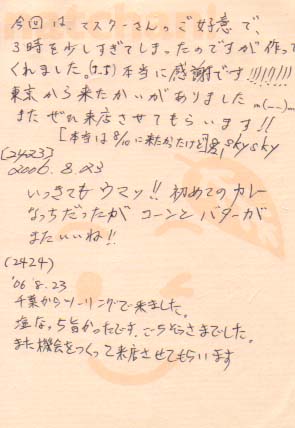 今回は、マスターさんのご好意で、
3時を少しすぎてしまったのですが作って
くれました。本当に感謝です!!!!!!
東京から来たかいがありました m(_ _)m
また ぜひ来店させてもらいます!!
[本当は8/10に来たかったけど] skysky
(2423)
2006.8.23
いつきてもウマッ!! 初めてのカレー
なっちだったが コーンとバターが
またいいね!!
(2424)
'06 8.23
千葉からツーリングで来ました。
塩なっち旨かったです。ごちそうさまでした。
また機会をつくって来店させてもらいます